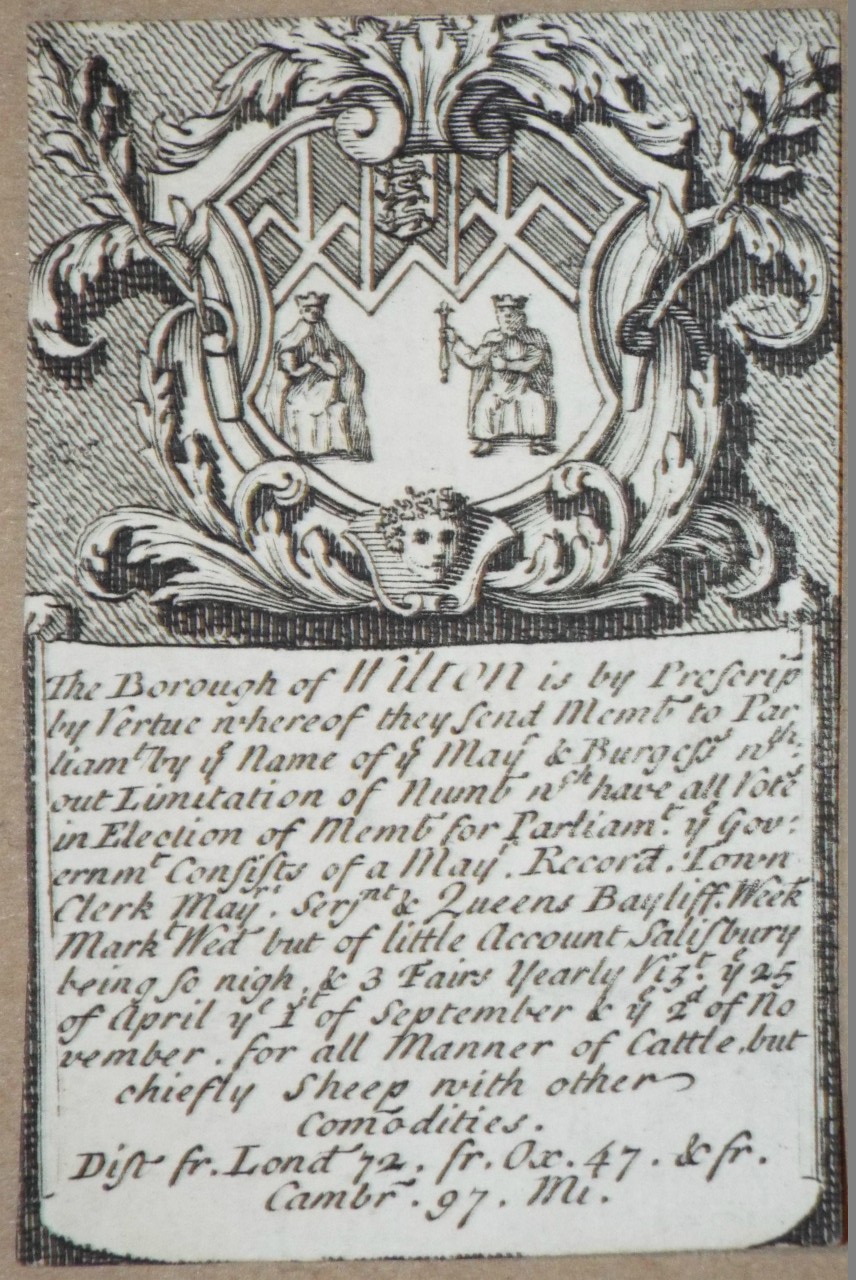 The Borough of Wilton is by Preſcrip̄
by Vertue whereof they ſend Memb.ʳ to Par
liam.ᵗ by yᵉ Name of yᵉ Mayʳ & Burgeſſˢ wᵗʰ:
out Limitation of Numbʳ wᶜʰ have all Voteˢ
in Election of Membʳ for Parliam.ᵗ yᵉ Gov:
ernmᵗ Conſiſts of a Mayʳ. Recordʳ. Town
Clerk Mayʳˢ. Serjⁿᵗ & Queens Bayliff. Week
Markᵗ Wedˢ but of little Account Saliſbury
being ſo nigh. & 3 Fairs Yearly Vizᵗ. yᵉ 25
of April yᵉ 1ˢᵗ of September & yᵉ 2ᵈ of No
vember. for all Manner of Cattle. but
chiefly Sheep with other
Com̄odities.
Diſt fr. Londⁿ 72. fr. Ox. 47. & fr.
Cambr. 97. Mi.